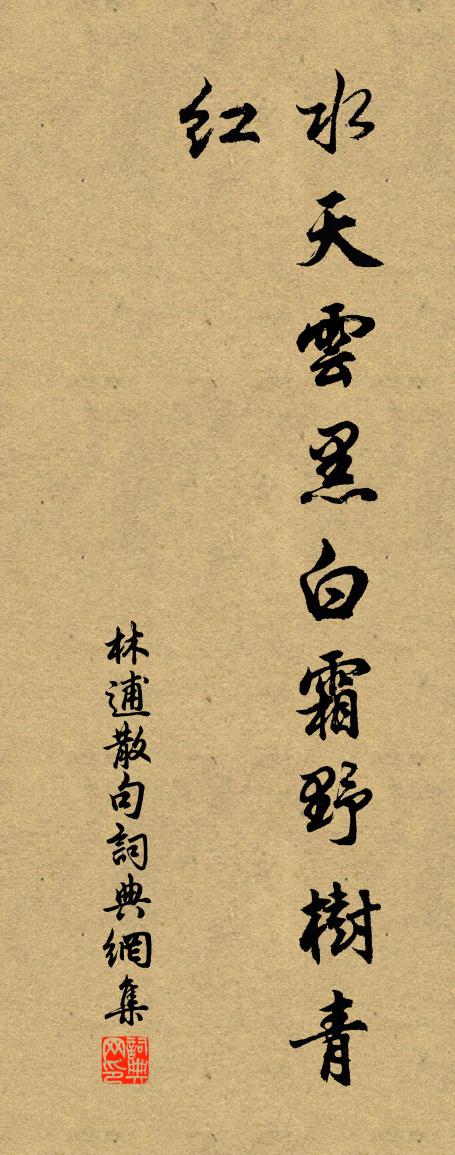 水天雲黑白霜野樹青
紅
林逋散句詞典網集
詞典网印